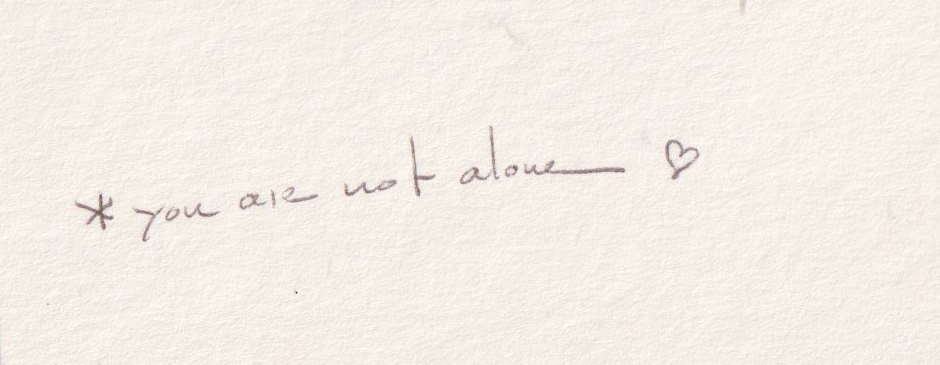 * you are not alone ♡